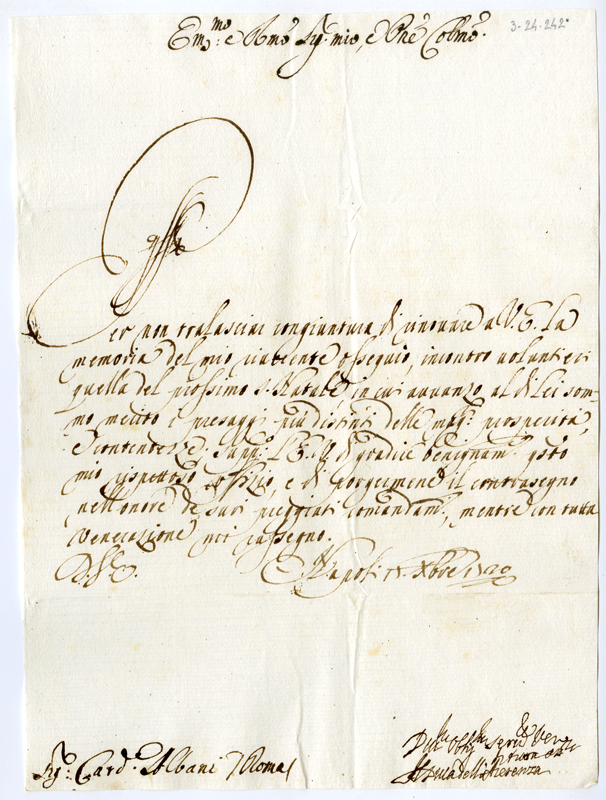 3-24-242.
Em.mo e Rmo Sig. mio, e Prne Colmo.
Per non tralasciar congiuntura di rinovare a V. E. la
memoria del mio riverente ossequio, incontro voluntieri
quella del prossimo S. Natale, in cui avvanzo al di Lei som-
mo merito i presaggi più distinti delle magg. prosperità,
e contentezze. Supp. l'E. V. di gradire benignam. qsto
mio rispettoso offizio, e di porgermene il contrasegno
nell'onore de suoi preggiati comandam., mentre con tutta
venerazione mi rassegno.
D. V. E. Napoli Xbre 1720
Sig. Card. Albani Roma